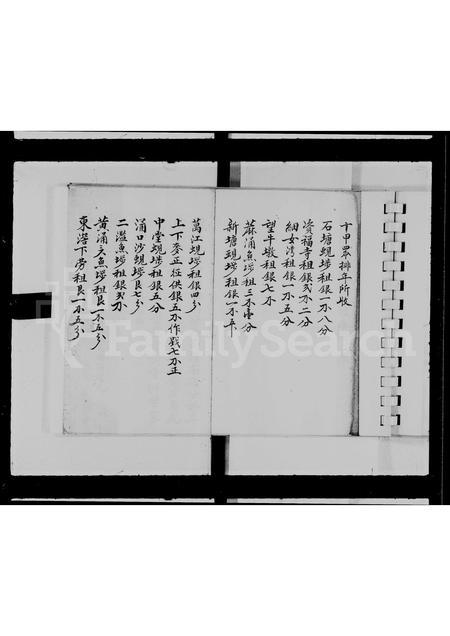 十甲眾排年所收
石塘蜆埗租銀一水八分
資福寺租銀弍水二分
細女湾租銀一水五分
望牛墩租銀七水
蔴涌魚埗租三水壹分
新塘蜆埗租銀一水平
萬江蜆埗租銀四分
上下麥正任供銀五水作戥七水正
中堂蜆埗租銀五分
涌口沙蜆埗艮七分
二濫魚埗租銀弍水
黄涌大魚埗租艮一水五分
東滘下房租艮一水五分
FamilySearch